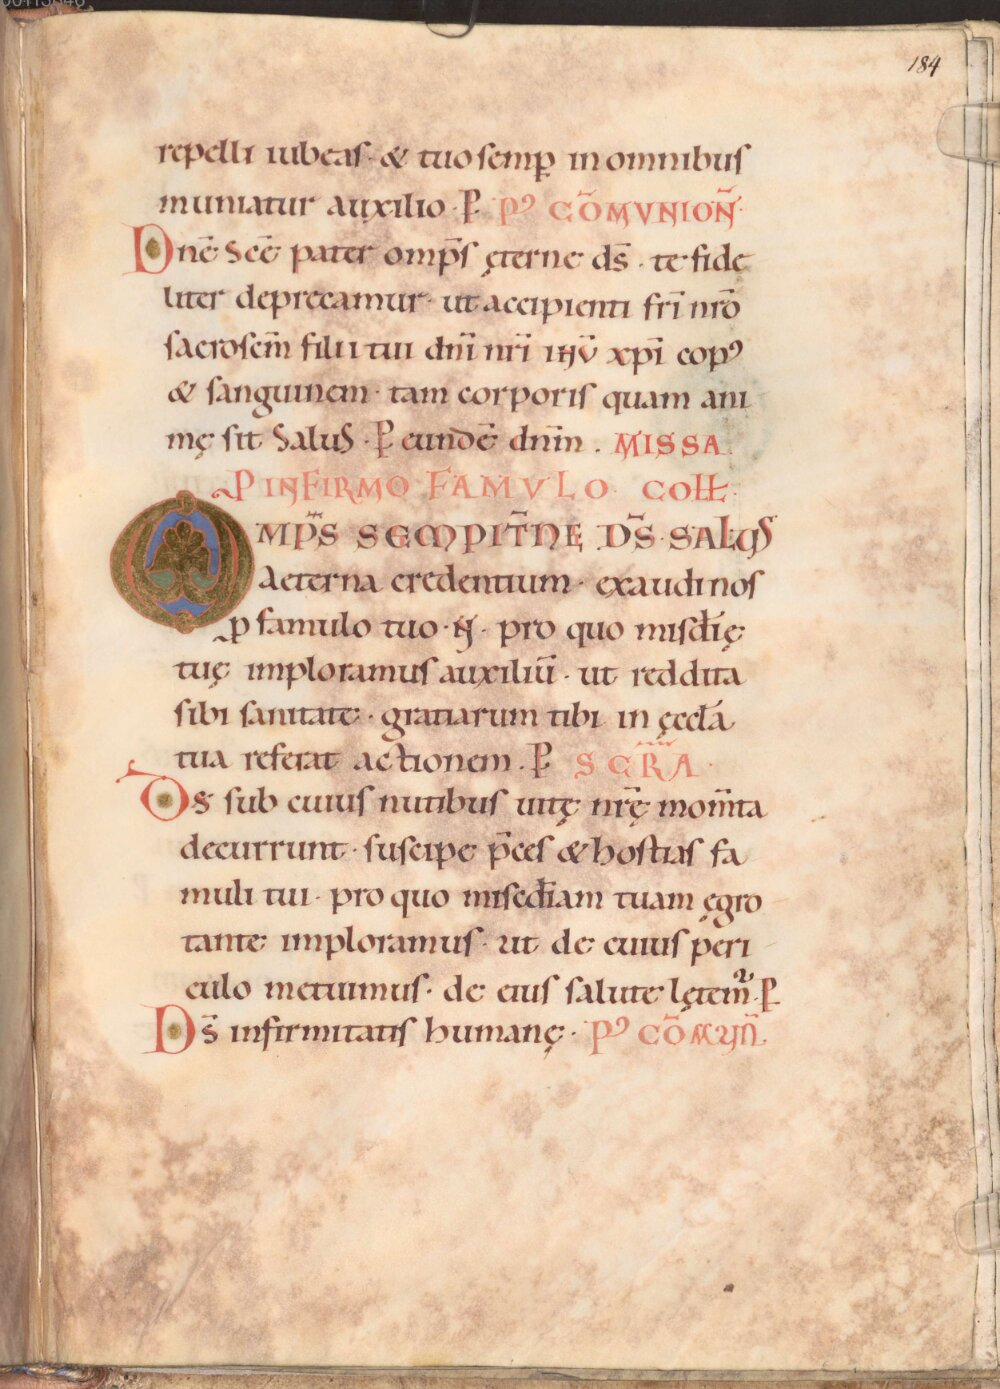 184
repelli iubeas· & tuo semp̄ in omnibus
muniatur auxilio · P̄ Pꝰ CŌMVNIOÑ·
Dnē Scē pater omp̄s ęterne ds̄ · te fide
liter deprecamur· ut accipienti frī nrō
sacroscm̄ filii tui dnī nrī ihū xpī copꝰ
& sanguinem · tam corporis quam ani
mę sit Salus · P̄ eundē dnm̄ . MISSA
P INFIRMO FAMVLO COLL·
OMP̄S SEMPIT̄NE DS̄ SALUS
aeterna credentium · exaudi nos
ꝓ famulo tuo · N̄ · pro quo misdīę
tuę imploramus auxiliū · ut reddita
sibi sanitate · gratiarum tibi in ęcclā
tua referat actionem . P̄ SECR̄A ·
Ds sub cuius nutibus uitę nrę̄ mom̄ta
decurrunt · suscipe p̄ces & hostias fa
muli tui · pro quo misedīam tuam ęgro
tante imploramus · ut de cuius peri
culo metuimus · de eius salute lętem̄ · P̄
Ds̄ infirmitatis humanę · Pꝰ CŌMUN̄.